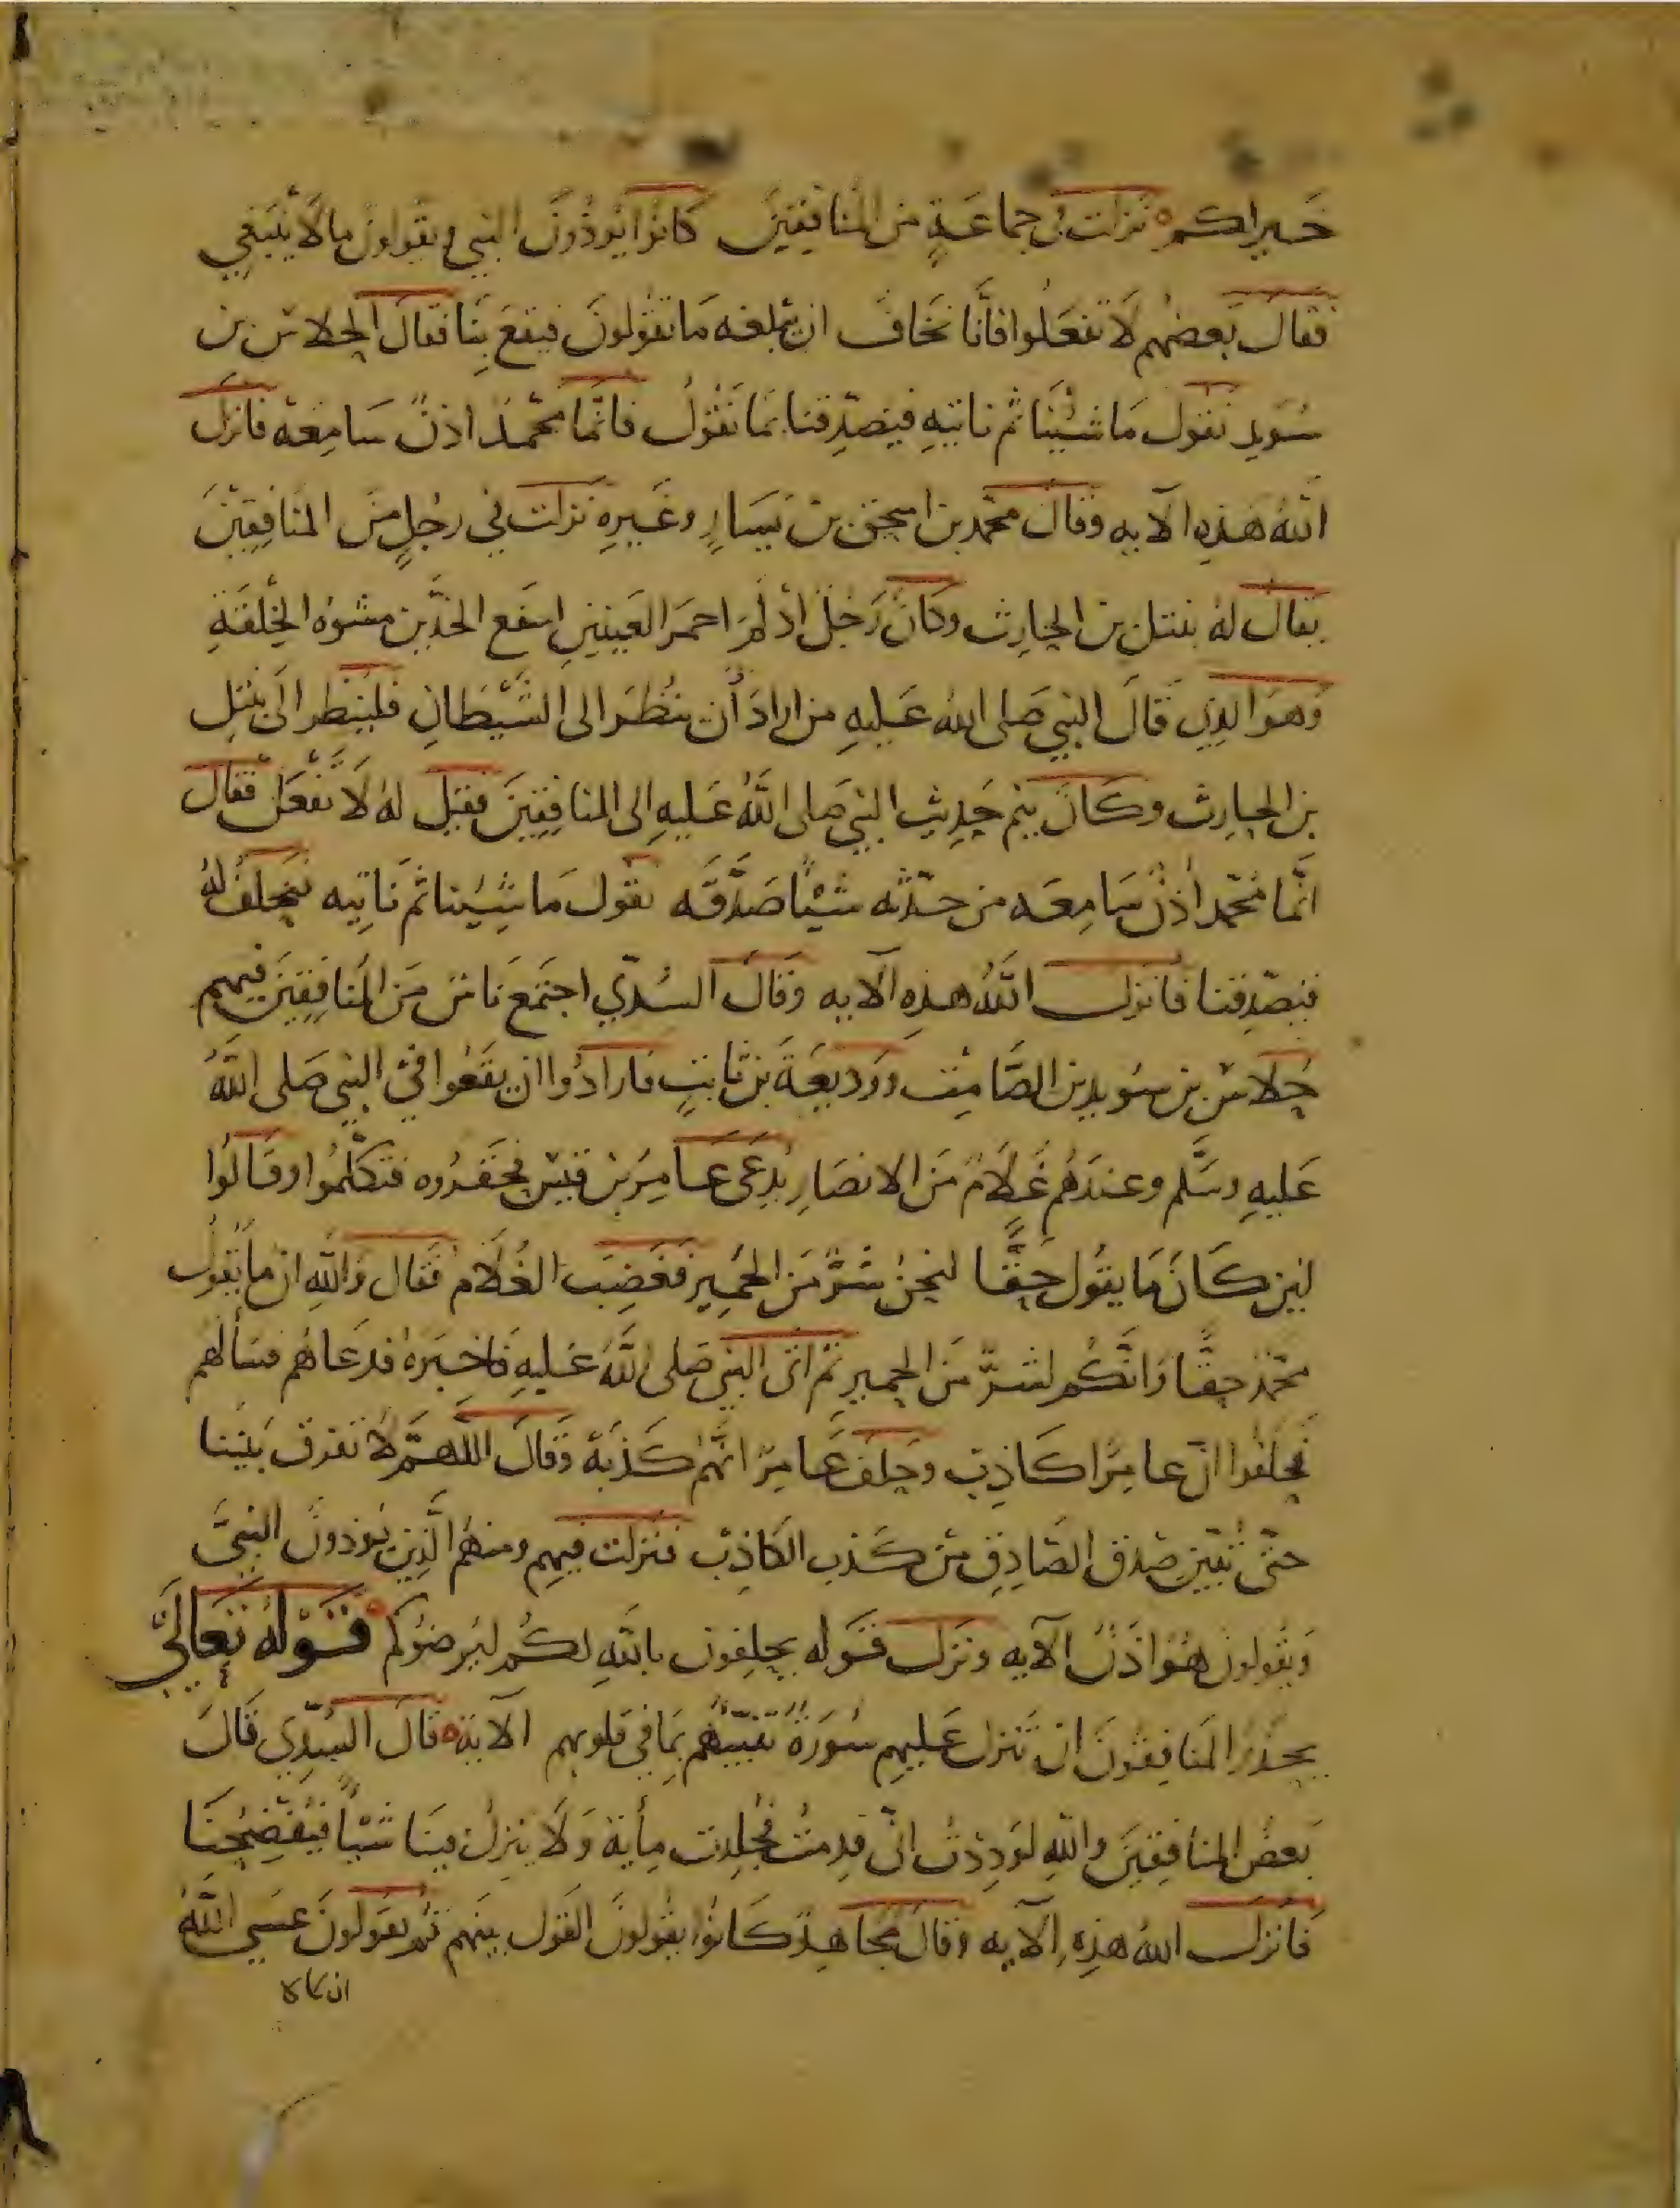 خير لكم نزلت في جماعة من المنافقين كانوا يوذون النبي ويقولون ما لا ينبغي
فقال بعضهم لا تفعلوا فانا نخاف ان يبلغه ما تقولون فيقع بنا فقال الجلاس بن
سويد نقول ما شئنا ثم ناتيه فيصدقنا بما نقول فانما محمد اذن سامعة فانزل
الله هذه الآيه وقال محمد بن اسحق بن يسار وغيره نزلت في رجل من المنافقين
يقال له نبتل بن الحارث وكان رجل ادلم احمر العينين اسفع الخدين مشوه الخلقة
وهو الذي قال النبي صلى الله عليه من اراد أن ينظر الى الشيطان فلينظر الى نبتل
بن الحارث وكان ينم حديث النبي صلى الله عليه الى المنافقين فقيل له لا تفعل فقال
انما محمد أذن سامعه من حدثه شيئا صدقه نقول ما شئنا ثم ناتيه فنحلف له
فيصدقنا فانزل الله هذه الآيه وقال السدي اجتمع ناس من المنافقين فيهم
جلاس بن سويد بن الصامت ووديعة بن ثابت فارادوا ان يقعوا في النبي صلى الله
عليه وسلم وعندهم غلام من الانصار يدعى عامر بن قيس فحقروه فتكلموا وقالوا
لين كان ما يقول حقا لنحن شر من الحمير فغضب الغلام فقال والله ان ما يقول
محمد حقا وانكم لشر من الحمير ثم اتى النبي صلى الله عليه فاخبره فدعاهم فسألهم
فحلفوا ان عامرا كاذب وحلف عامر انهم كذبة وقال اللهم لا تفرق بيننا
حتى تبين صدق الصادق من كذب الكاذب فنزلت فيهم ومنهم الذين يوذون النبي
ويقولون هو اذن الآيه ونزل قوله يحلفون بالله لكم ليرضوكم قوله تعالى
يحذر المنافقون ان تنزل عليهم سورة تنبيهم بما في قلوبهم الآية قال السدي قال
بعض المنافقين والله لوددت اني قدمت فجلدت مأية ولا ينزل فينا شيا فيفضحنا
فانزل الله هذه الآيه وقال مجاهد كانوا يقولون القول بينهم ثم يقولون عسى الله
ان لا